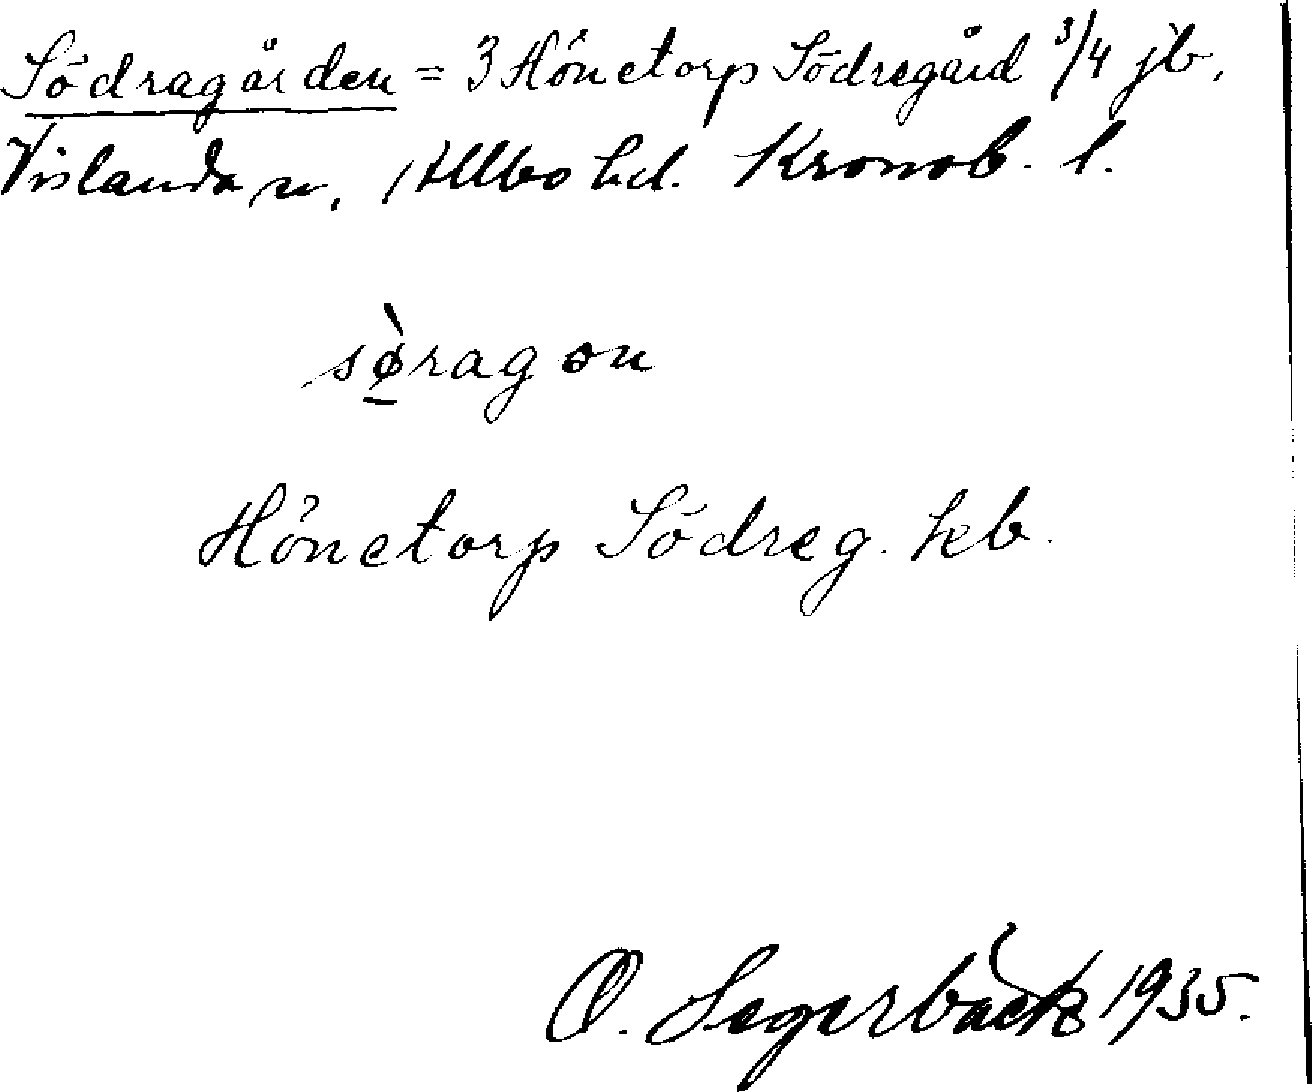 Södragården = 3 Hönetorp Södregård 3/4 jb.
Vislanda sn. Allbo hd. Kronob. l.
sø̠̀ragɘn
Hönetorp Södreg. kb.
O. Segerbäck 1935.